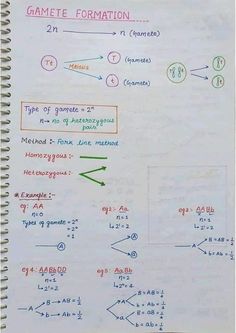 GAMETE FORMATION
2n → n (Gamete)
Tt Meiosis T (Gamete)
t (Gamete)
Type of gamete = 2ⁿ
n → no. of heterozygous pair
Method :- Fork line method
Homozygous :-
Heterozygous :-
Example :-
eg:- AA
n=0
Types of gamete = 2ⁿ
= 2⁰
= 1
A
eg2:- Aa
n=1
↳ 2¹ = 2
A
a
eg3:- AABb
n=1
↳ 2¹ = 2
A B = AB = 1/2
b = Ab = 1/2
eg4:- AABbDD
n=1
↳ 2¹ = 2
A B → AB = 1/2
b → Ab = 1/2
eg5:- AaBb
n=2
↳ 2² = 4
A B = AB = 1/4
b = Ab = 1/4
a B = aB = 1/4
b = ab = 1/4